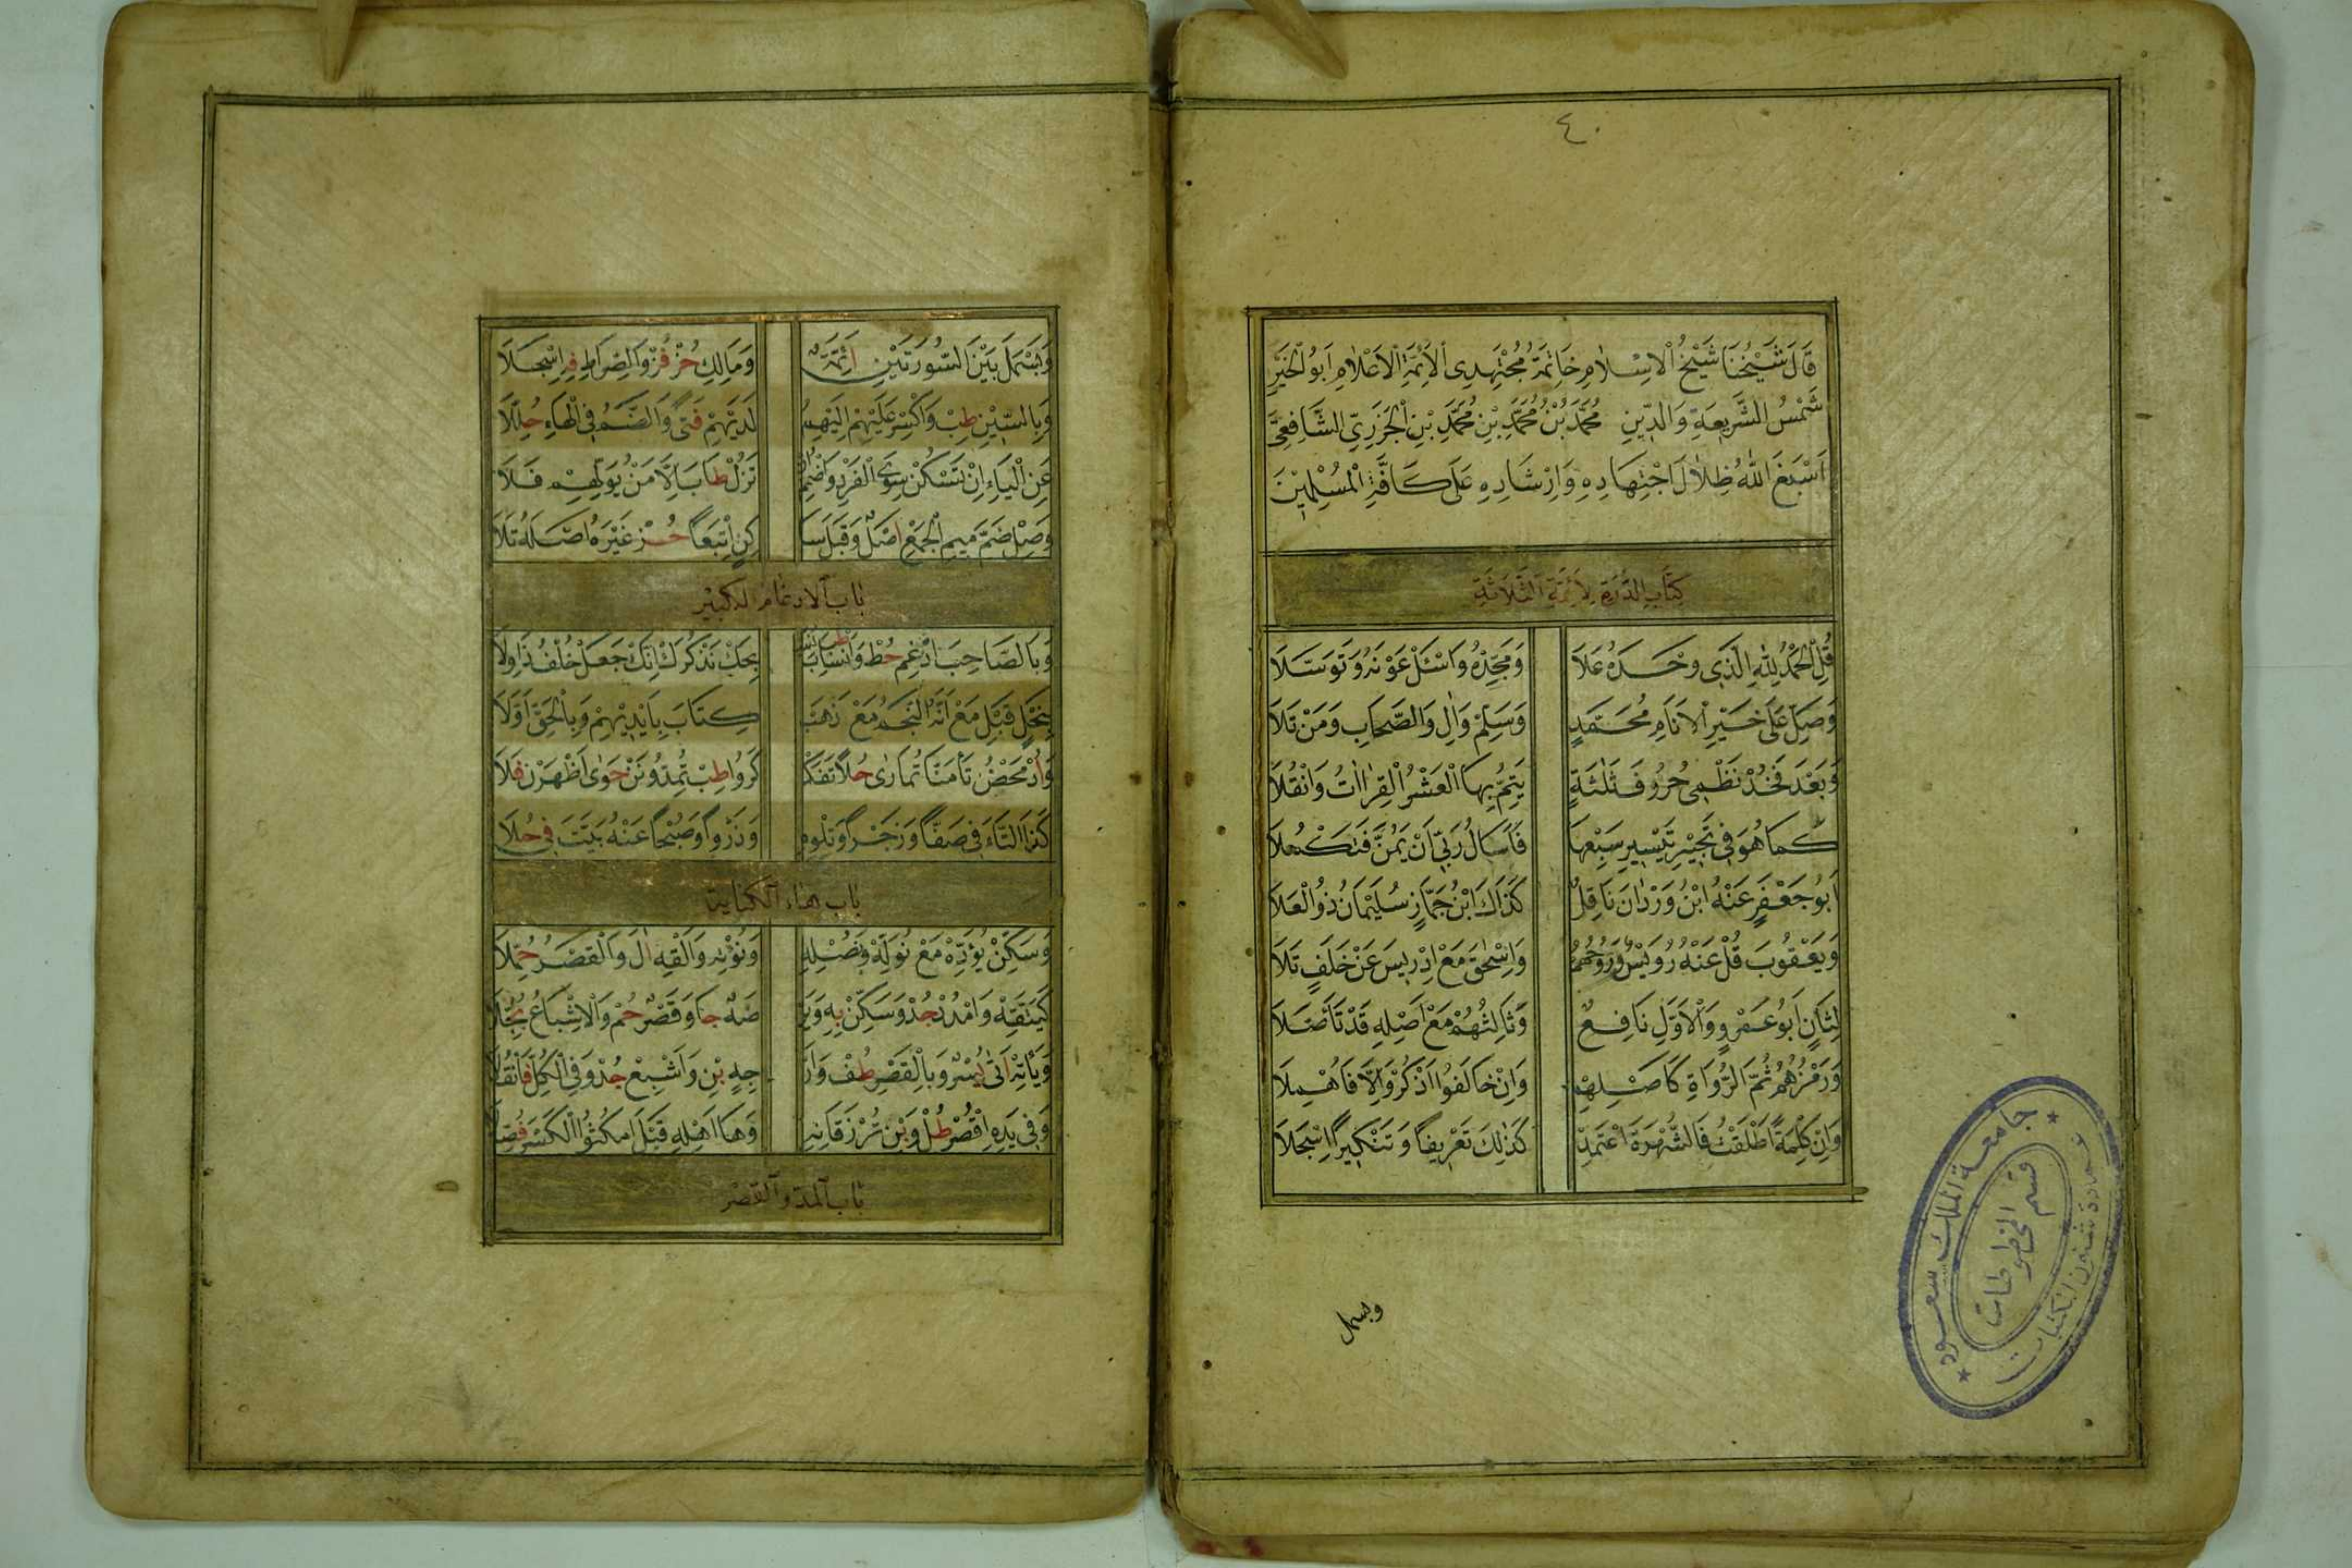 ٤٠
قَالَ شَيْخُنَا شَيْخُ الْاِسْلَامِ خَاتِمَةُ مُجْتَهِدِى الْاَئِمَّةِ الْاَعْلَامِ اَبُو الْخَيْرِ
شَمْسُ الشَّرِيعَةِ وَالدِّينِ مُحَمَّدُ بْنُ مُحَمَّدِ بْنِ مُحَمَّدِ بْنِ الْجَزَرِيِّ الشَّافِعِيُّ
اَسْبَغَ اللّٰهُ ظِلَالَ اجْتِهَادِهِ وَاِرْشَادِهِ عَلَى كَافَّةِ الْمُسْلِمِيْنَ
كِتَابُ الدُّرَّةِ لِأَئِمَّةِ الثَّلَاثَةِ
قُلِ الْحَمْدُ لِلّٰهِ الَّذِى وَحْدَهُ عَلَا وَمَجِّدْهُ وَاسْئَلْ عَوْنَهُ وَتَوَسَّلَا
وَصَلِّ عَلَى خَيْرِ الْاَنَامِ مُحَمَّدٍ وَسَلِّمْ وَاٰلٍ وَالصِّحَابِ وَمَنْ تَلَا
وَبَعْدُ فَخُذْ نَظْمِى حُرُوفَ ثَلٰثَةٍ يَتِمُّ بِهَا الْعَشْرُ الْقِرَااٰتُ وَانْقُلَا
كَمَا هُوَ فِى تَحْبِيْرِ تَيْسِيرِ سَبْعِهَا فَاَسْاَلُ رَبِّى اَنْ يَمُنَّ فَتَكْمُلَا
اَبُو جَعْفَرٍ عَنْهُ ابْنُ وَرْدَانَ نَاقِلٌ كَذَاكَ ابْنُ جَمَّازٍ سُلَيْمَانُ ذُو الْعَلَا
وَيَعْقُوبَ قُلْ عَنْهُ رُوَيْسٌ وَرَوْحُهُمْ وَاِسْحٰقُ مَعْ اِدْرِيسَ عَنْ خَلَفٍ تَلَا
لِثَانٍ اَبُو عَمْرٍو وَالْاَوَّلِ نَافِعٌ وَثَالِثُهُمْ مَعْ اَصْلِهِ قَدْ تَأَصَّلَا
وَرَمْزُهُمُ ثُمَّ الرُّوَاةِ كَاَصْلِهِمْ وَاِنْ خَالَفُوا اَذْكُرْ وَاِلَّا فَاُهْمِلَا
وَاِنْ كِلْمَةً اَطْلَقْتُ فَالشُّهْرَةَ اعْتَمِدْ كَذٰلِكَ تَعْرِيفًا وَتَنْكِيرًا اِسْجَلَا
وبسمل
جامعة الملك سعود
عمادة شئون المكتبات
قسم المخطوطات
وَبَسْمَلَ بَيْنَ السُّورَتَيْنِ اَئِمَّةٌ وَمَالِكِ حُزْ فُزْ وَالصِّرَاطِ فِهِ اسْجِلَا
وَبِالسِّيْنِ طِبْ وَاكْسِرْ عَلَيْهِمْ اِلَيْهِمُ لَدَيْهِمْ فَتًى وَالضَّمُّ فِى الْهَاءِ حُلِّلَا
عَنِ الْيَاءِ اِنْ تَسْكُنْ سِوَى الْفَرْدِ وَاضْمُمْ اِنْ تَزُلْ طَابَ اِلَّا مَنْ يُوَلِّهِمِ فَلَا
وَصِلْ ضَمَّ مِيمِ الْجَمْعِ اَصْلٌ وَقَبْلَ سَا كِنٍ اتْبَعًا حُزْ غَيْرَهُ اَصْلَهُ تَلَا
بَابُ الْاِدْغَامِ الْكَبِيْرِ
وَبِالصَّاحِبِ ادْغِمْ حُطْ وَاَنْسَابَ طِبْ نُسَبْ بِحَكْ نَذْكُرَكْ اِنَّكْ جَعَلْ خُلْفُ ذَا وِلَا
بِنَحْلٍ قِبَلْ مَعْ اَنَّهُ النَّجْمُ مَعْ ذَهَبْ كِتَابَ بِاَيْدِيْهِمْ وَبِالْحَقِّ اَوَّلَا
وَاُدْ مَحْضُ تَأْمَنَّا تُمَارٰى حُلًا تَفَكْ كَرُوا طِبْ تُمِدُّونَنْ حَوٰى اَظْهِرَنْ فَلَا
كَذَا التَّاءُ فِى صَفًّا وَزَجْرًا وَتِلْوِهِ وَذَرْوًا وَصُبْحًا عَنْهُ بَيَّتَ فِى حُلَا
بَابُ هَاءِ الْكِنَايَةِ
وَسَكِّنْ يُؤَدِّهْ مَعْ نُوَلِّهْ وَنُصْلِهِ وَنُؤْتِهْ وَاَلْقِهْ اٰلَ وَالْقَصْرُ حُمِّلَا
كَيَتَّقِهْ وَامْدُدْ جُدْ وَسَكِّنْ بِهِ وَيَرْ ضَهُ جَا وَقَصْرٌ حُمْ وَالْاِشْبَاعُ بُجِّلَا
وَيَأْتِهْ اَتٰى يُسْرٌ وَبِالْقَصْرِ طُفْ وَاَرْ جِهِ بِنْ وَاَشْبِعْ جُدْ وَفِى الْكُلِّ فَانْقُلَا
وَفِى يَدِهِ اقْصُرْ طُلْ وَبِنْ تُرْزَقَانِهِ وَهَا اَهْلِهِ قَبْلَ امْكُثُوا الْكَسْرُ فُصِّلَا
بَابُ الْمَدِّ وَالْقَصْرِ